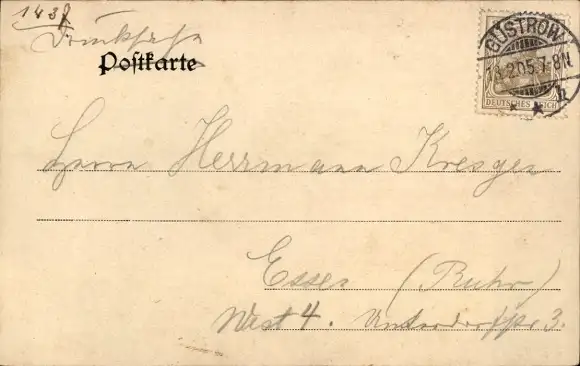 1438
Drucksache
Postkarte
GÜSTROW
13.2.05.7-8N.
DEUTSCHES REICH
Herrn Herrmann Kresges
Essen (Ruhr)
West 4. 3.